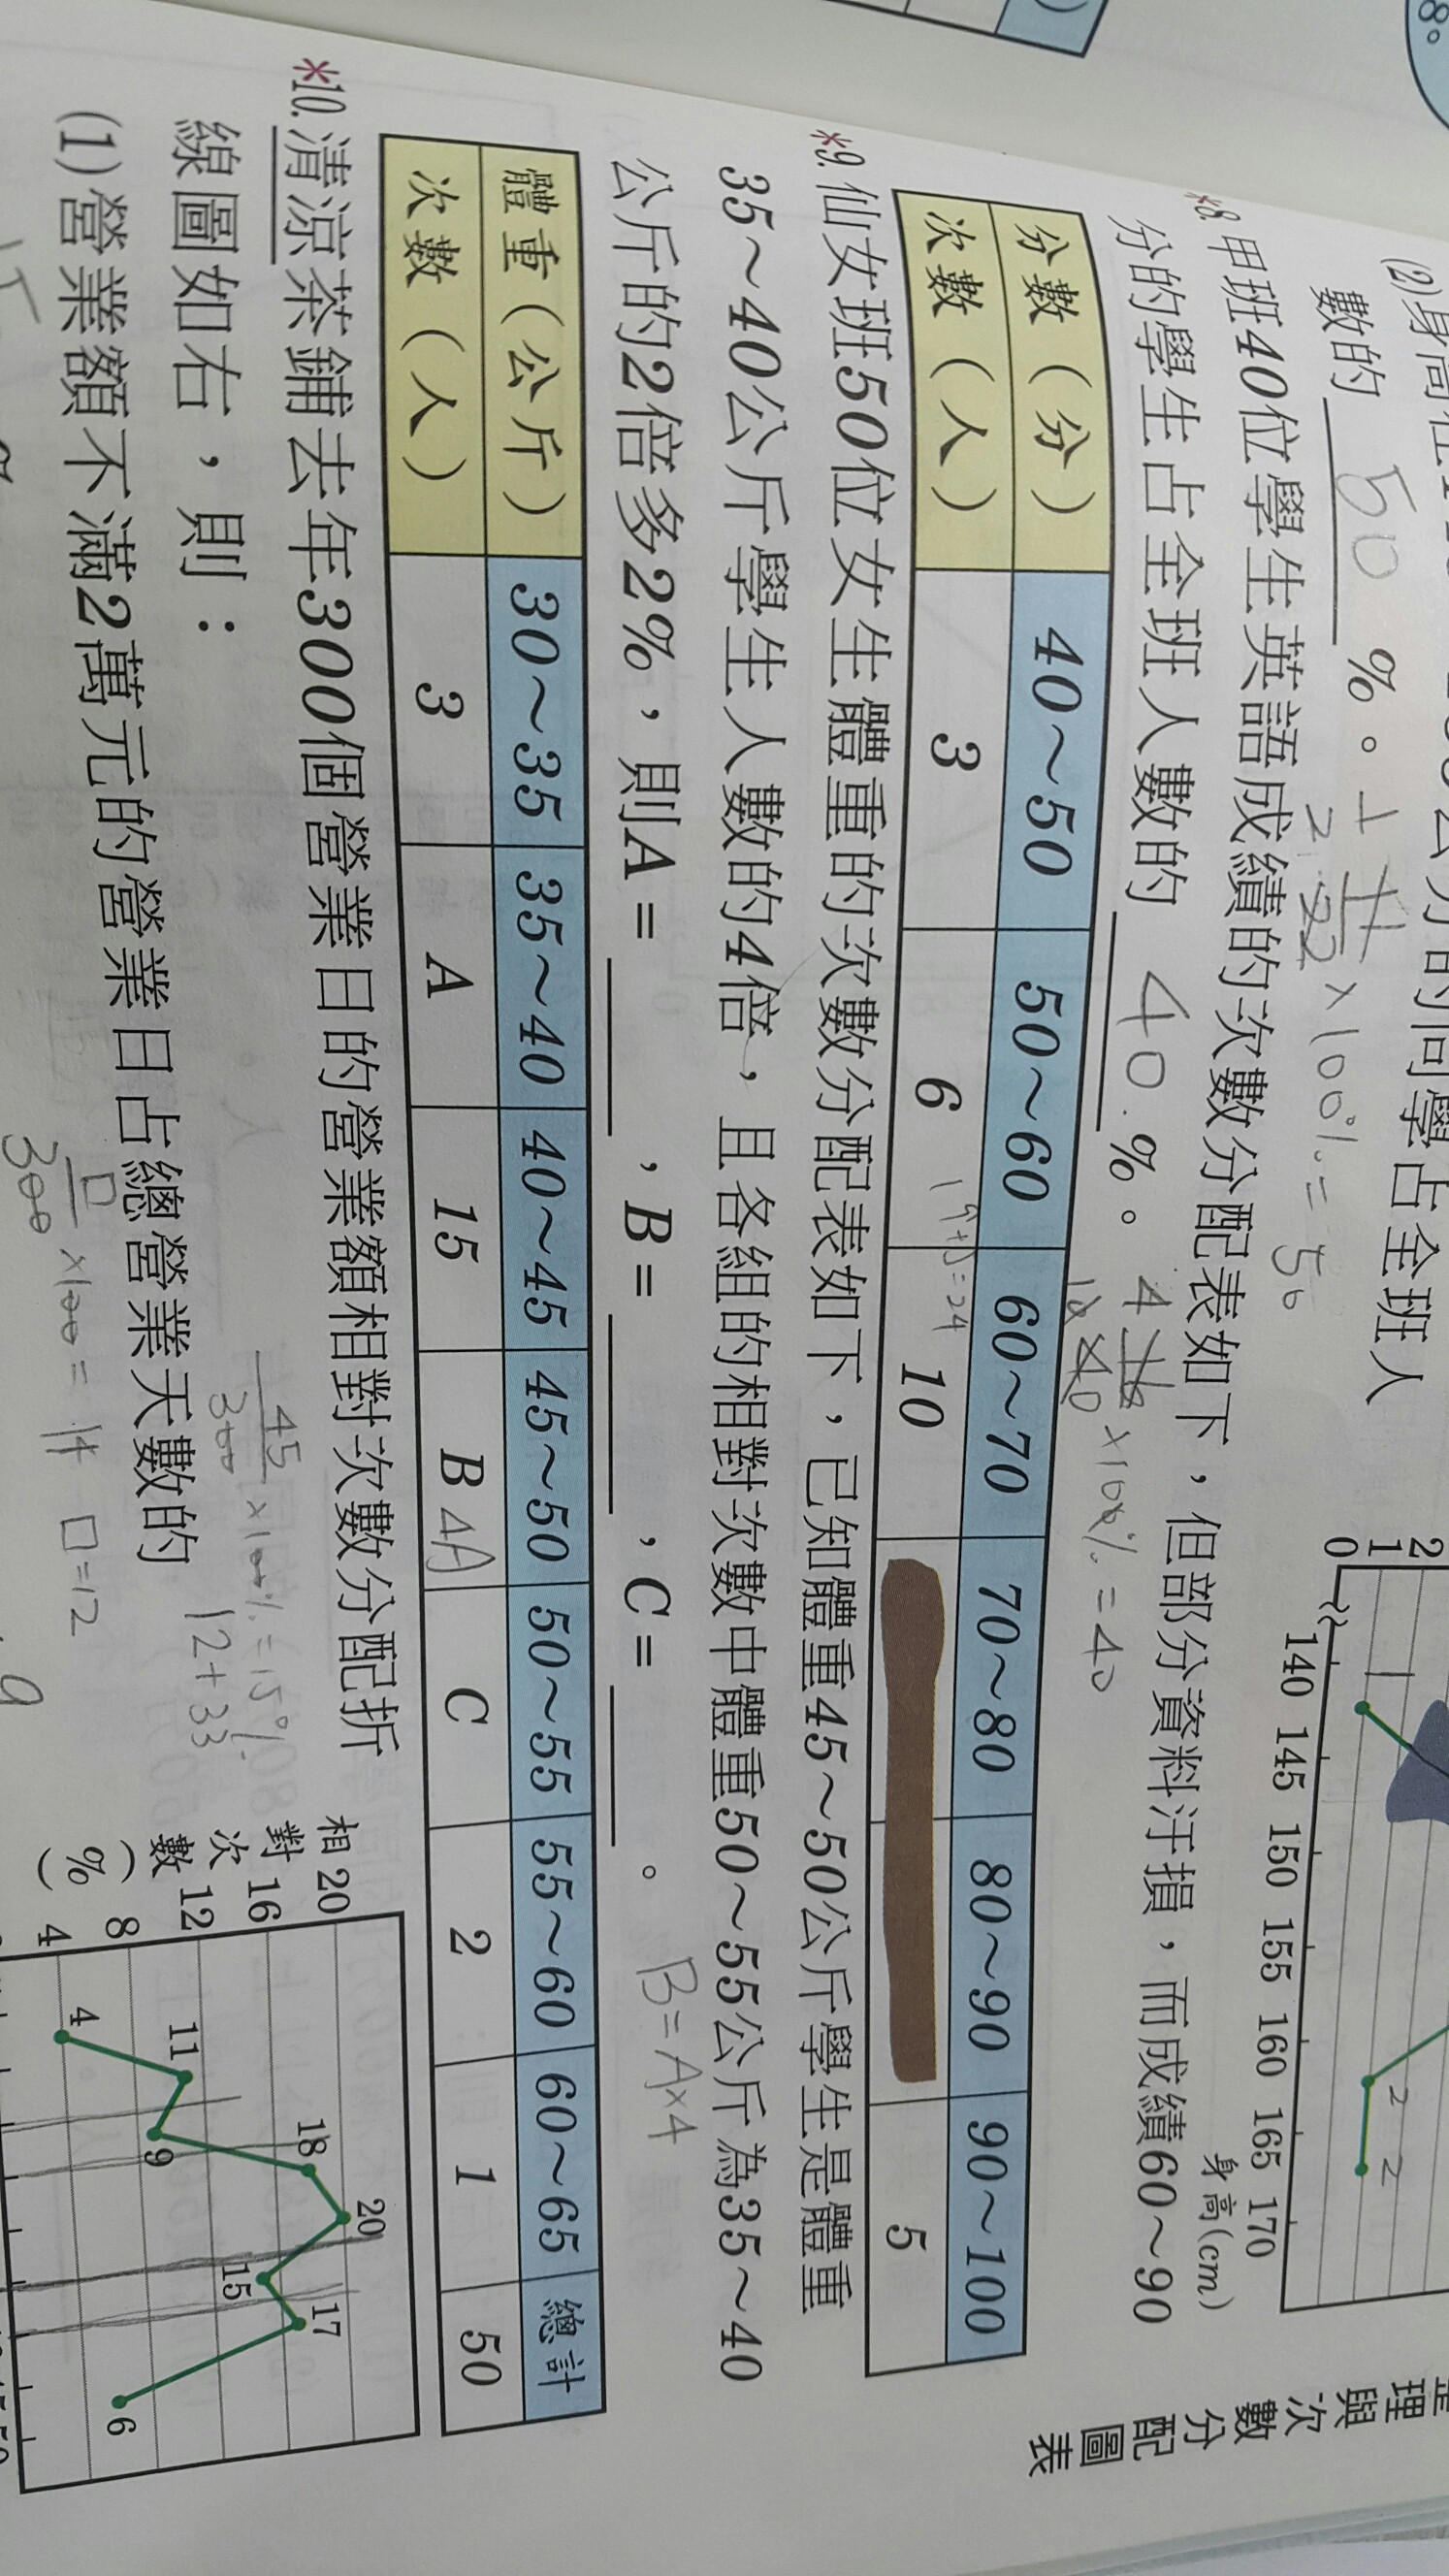 (2)身高在1
公分的同學占全班人
數的 50 %。
1 11/22 × 100% = 50
2
*8. 甲班40位學生英語成績的次數分配表如下,但部分資料汙損,而成績60~90
分的學生占全班人數的 40 %。
4 16/40 × 100% = 40
10
分數(分) 40~50 50~60 60~70 70~80 80~90 90~100
次數(人) 3 6 10 5
=24
*9. 仙女班50位女生體重的次數分配表如下,已知體重45~50公斤學生是體重
35~40公斤學生人數的4倍,且各組的相對次數中體重50~55公斤為35~40
公斤的2倍多2%,則A= ,B= ,C= 。
B=A×4
體重(公斤) 30~35 35~40 40~45 45~50 50~55 55~60 60~65 總計
次數(人) 3 A 15 B 4A C 2 1 50
*10. 清涼茶鋪去年300個營業日的營業額相對次數分配折
線圖如右,則:
45/300 × 100% = 15%
12+33
(1)營業額不滿2萬元的營業日占總營業天數的
□/300 × 100 = 14 □=12
2
1
0
140 145 150 155 160 165 170
身高(cm)
2 2
理與次數分配圖表
相對次數(%)
20
16
12
8
4
4 11 9 18 20 15 17 6